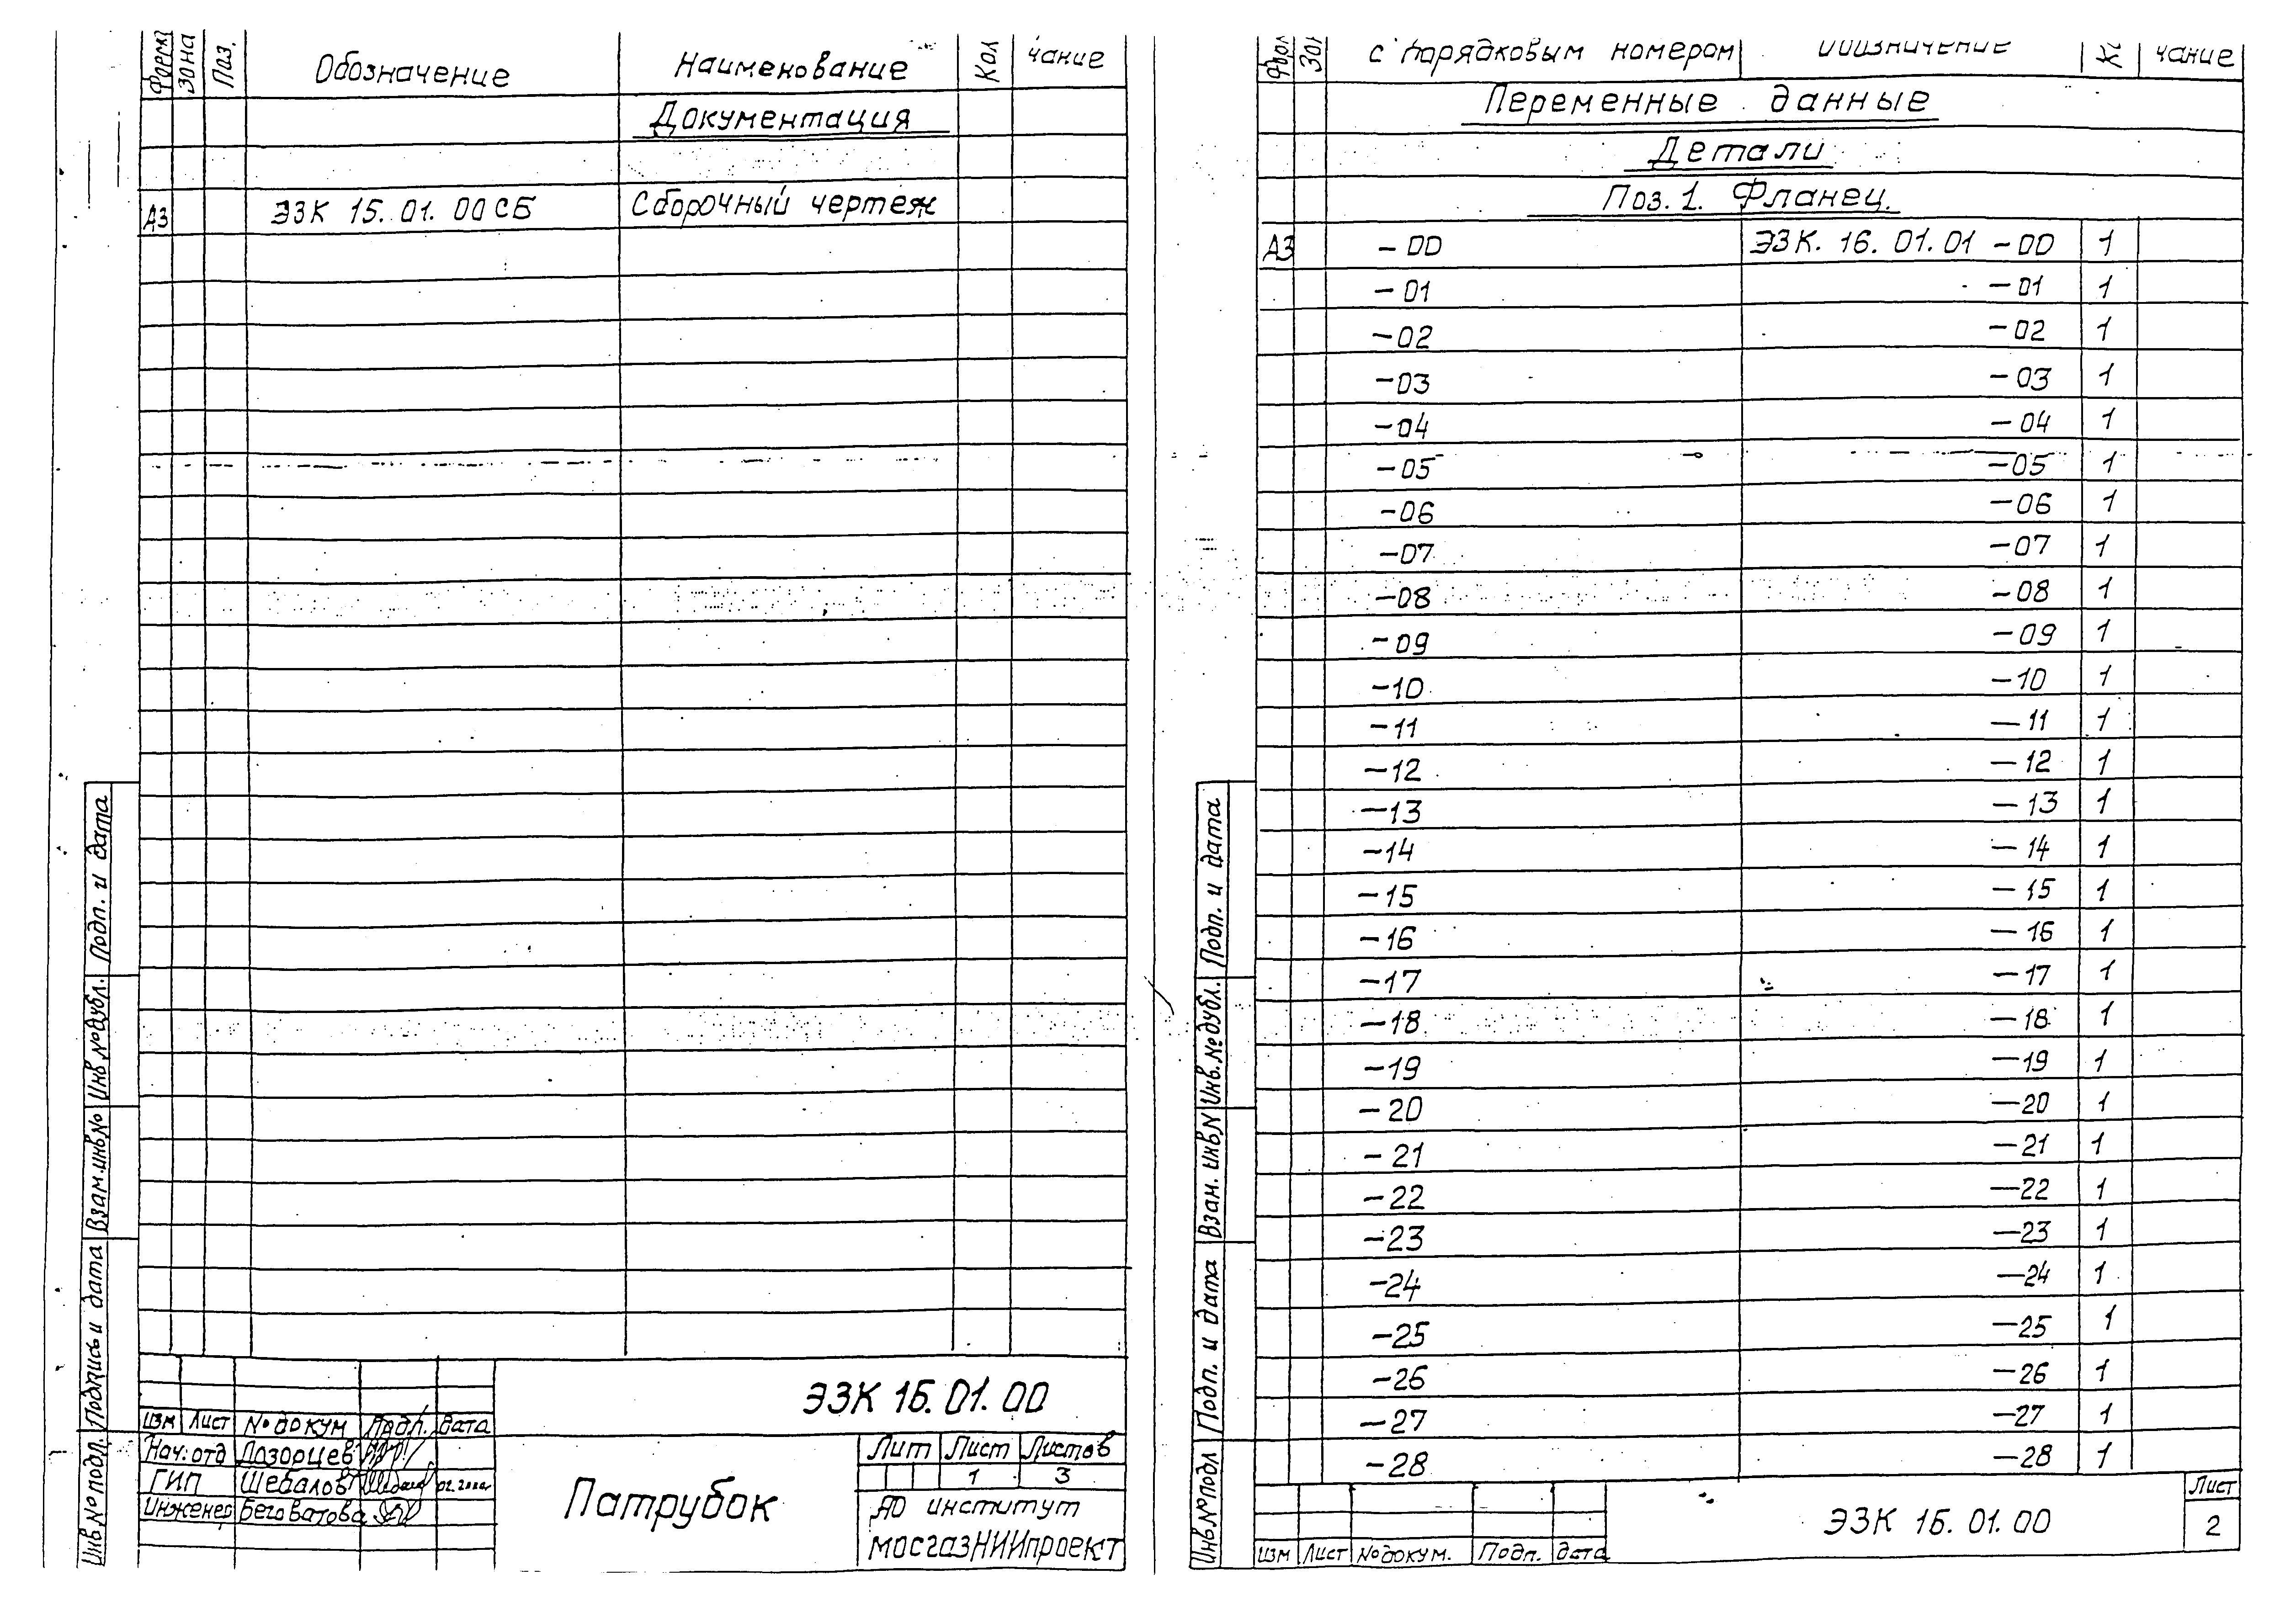 Зона Поз. Обозначение Наименование Кол чание
Документация
А3 ЭЗК 15.01.00 СБ Сборочный чертеж
Подп. и дата
Инв № дубл.
Взам. инв №
Подпись и дата
Инв № подл.
ЭЗК 15.01.00
изм Лист № докум Подп. дата
Нач. отд Дозорцев
ГИП Шебалов 02.2000
Инженер Беговатова
Патрубок
Лит Лист Листов
1 3
АО институт
мосгазНИИпроект
с порядковым номером Обозначение чание
Переменные данные
Детали
Поз. 1. Фланец.
А3 -00 ЭЗК. 16.01.01 -00 1
-01 -01 1
-02 -02 1
-03 -03 1
-04 -04 1
-05 -05 1
-06 -06 1
-07 -07 1
-08 -08 1
-09 -09 1
-10 -10 1
-11 -11 1
-12 -12 1
-13 -13 1
-14 -14 1
-15 -15 1
-16 -16 1
-17 -17 1
-18 -18 1
-19 -19 1
-20 -20 1
-21 -21 1
-22 -22 1
-23 -23 1
-24 -24 1
-25 -25 1
-26 -26 1
-27 -27 1
-28 -28 1
Подп. и дата
Инв. № дубл.
Взам. инв N
Подп. и дата
Инв № подл
изм Лист № докум. Подп. дата
ЭЗК 15.01.00
Лист
2